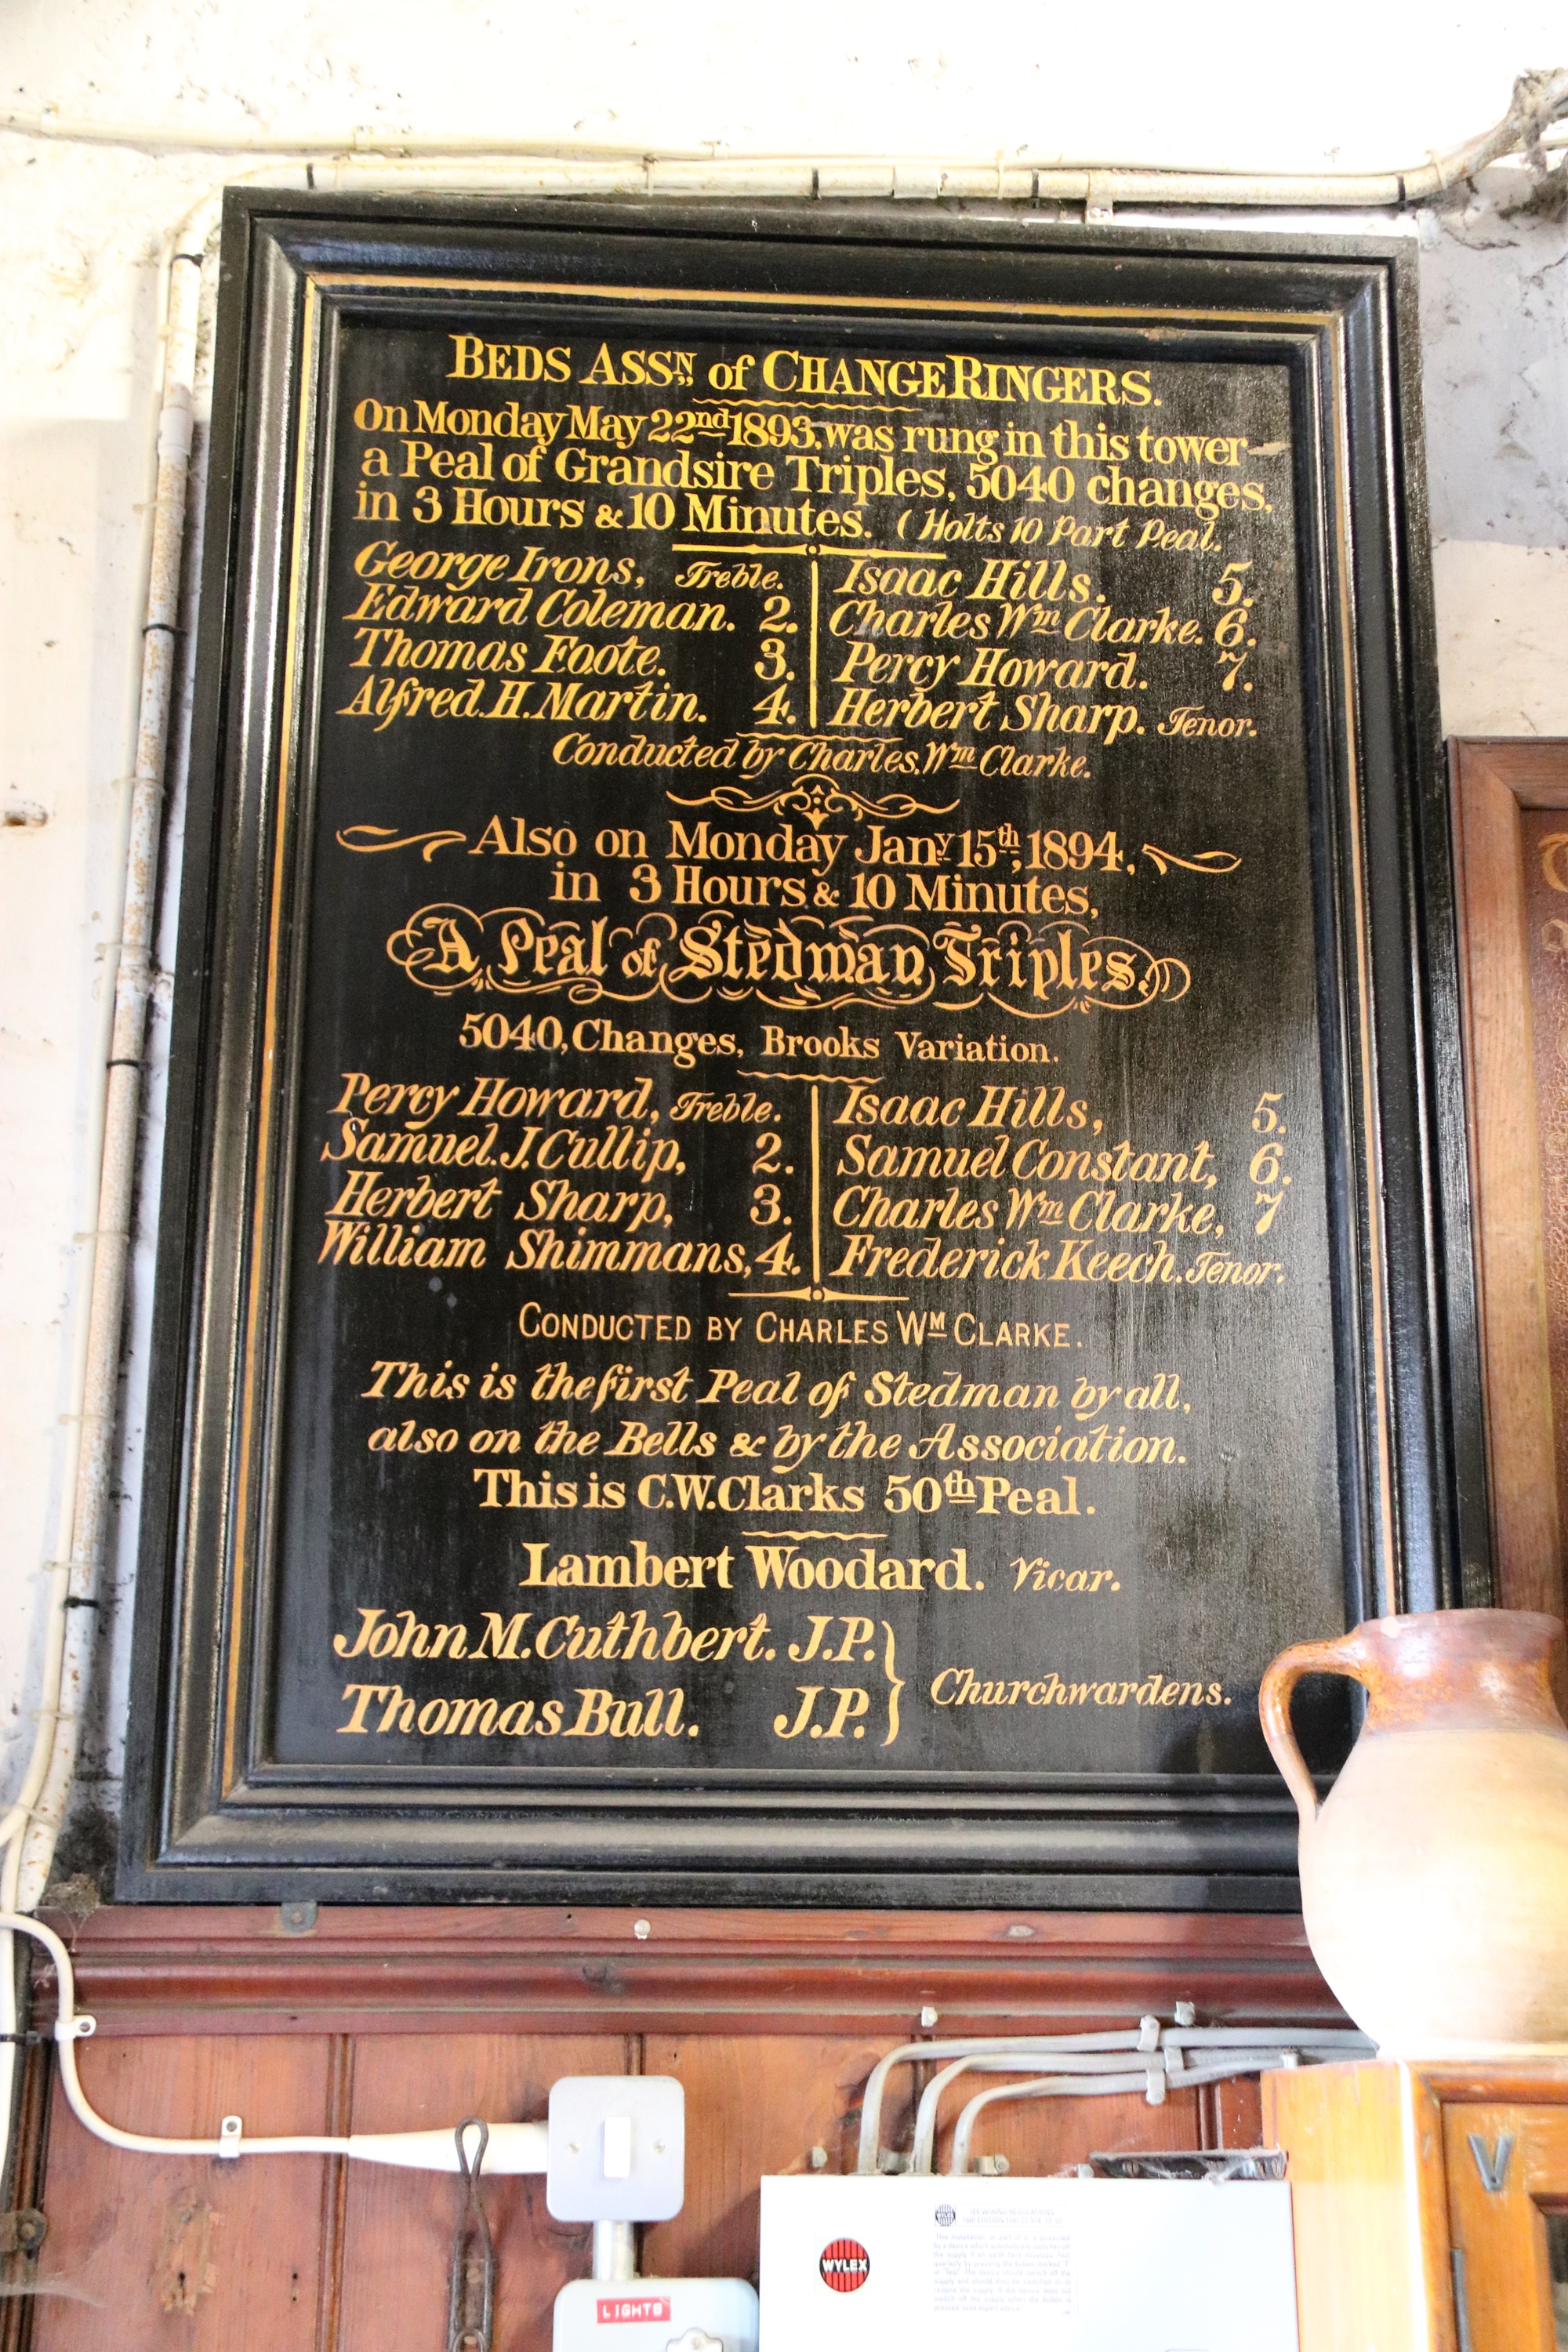 BEDS ASSN. of CHANGE RINGERS.
On Monday May 22nd 1893. was rung in this tower
a Peal of Grandsire Triples, 5040 changes,
in 3 Hours & 10 Minutes. (Holts 10 Part Peal.
George Irons, Treble. Isaac Hills. 5.
Edward Coleman. 2. Charles Wm Clarke. 6.
Thomas Foote. 3. Percy Howard. 7.
Alfred.H.Martin. 4. Herbert Sharp. Tenor.
Conducted by Charles.Wm Clarke.
Also on Monday Jany 15th, 1894,
in 3 Hours & 10 Minutes,
A Peal of Stedman Triples.
5040, Changes, Brooks Variation.
Percy Howard, Treble. Isaac Hills, 5.
Samuel.J.Cullip, 2. Samuel Constant, 6.
Herbert Sharp, 3. Charles Wm Clarke, 7
William Shimmans, 4. Frederick Keech. Tenor.
CONDUCTED BY CHARLES WM CLARKE.
This is the first Peal of Stedman by all,
also on the Bells & by the Association.
This is C.W.Clarks 50th Peal.
Lambert Woodard. Vicar.
John M.Cuthbert. J.P.
Thomas Bull. J.P. } Churchwardens.
WYLEX
LIGHTS